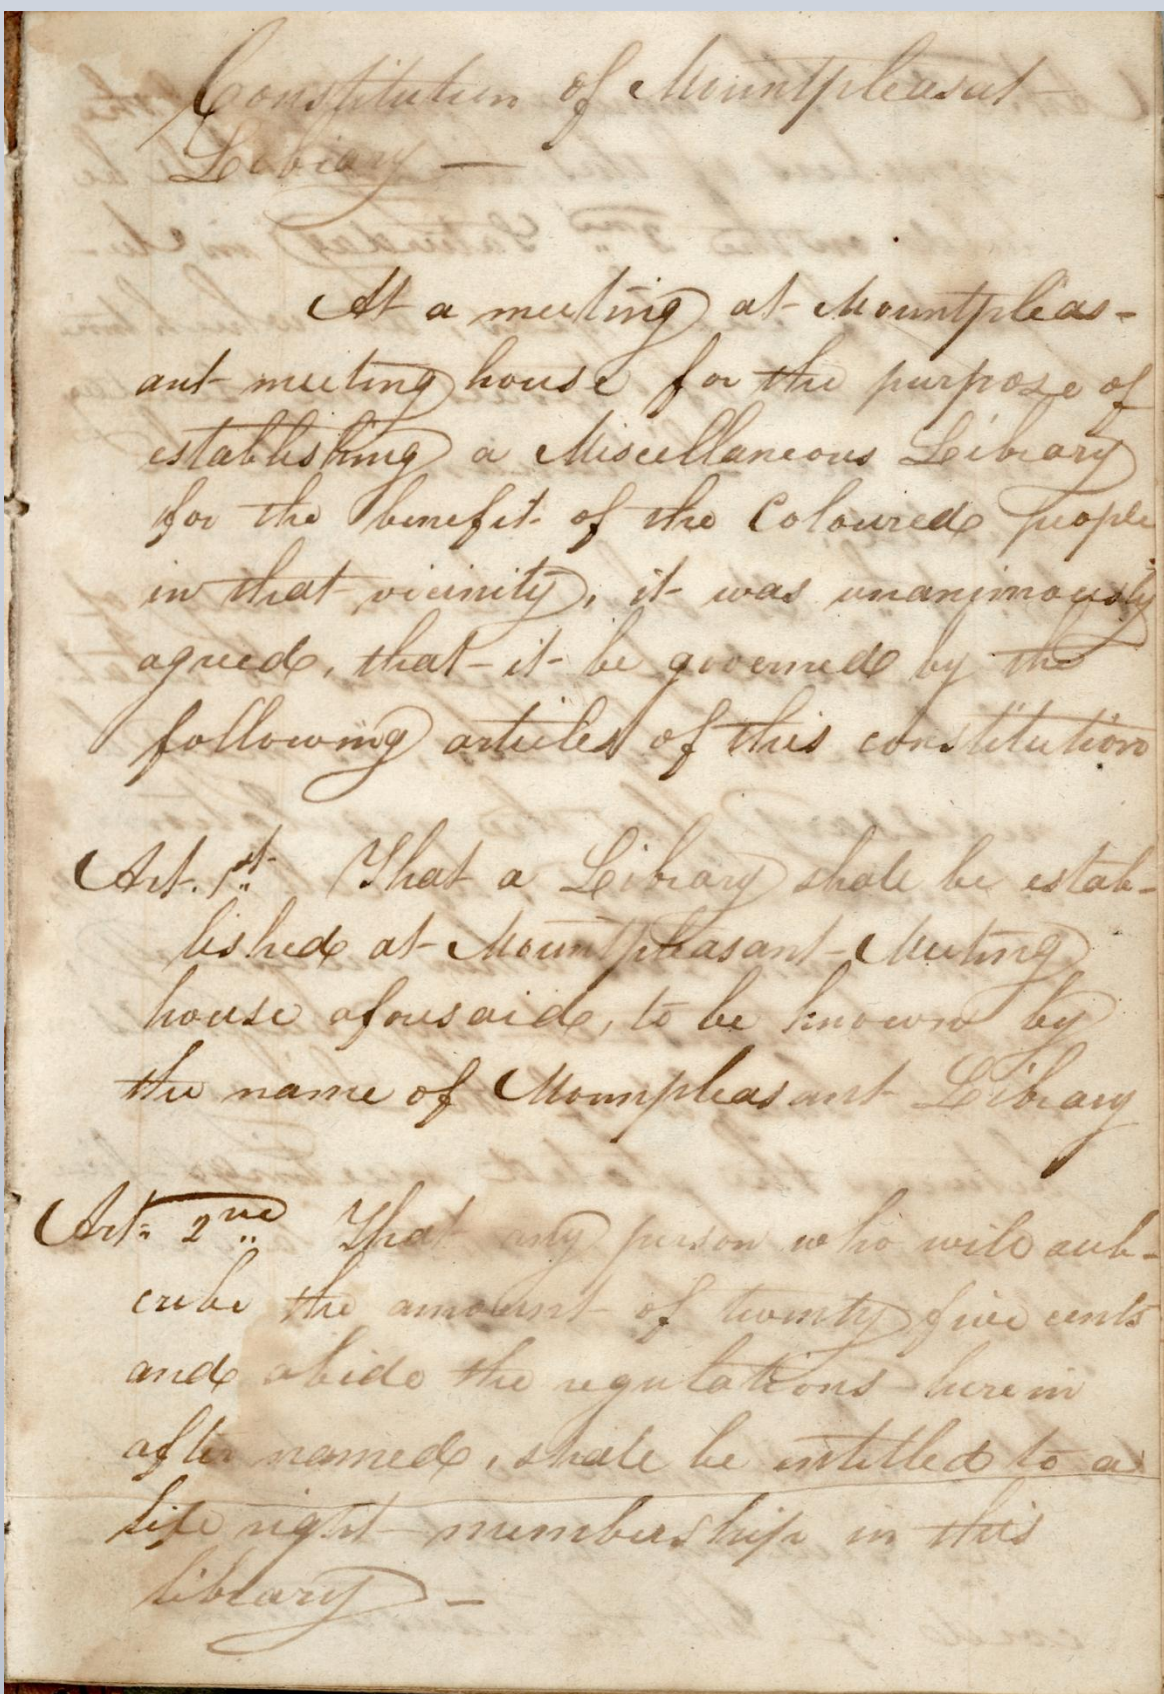 Constitution of Mountpleasat
Library —
At a meeting at Mountpleas-
ant meeting house for the purpose of
establishing a Miscellaneous Library
for the benefit of the Coloured people
in that vicinity, it was unanimously
agreed, that it be governed by the
following articles of this constitution
Art. 1st. That a Library shall be estab-
lished at Mountpleasant Meeting
house aforesaid, to be known by
the name of Mounpleasant Library
Art. 2nd That any person who will sub-
cribe the amount of twenty five cents
and abide the regulations herein
after named, shall be intitled to a
life right membership in this
library —